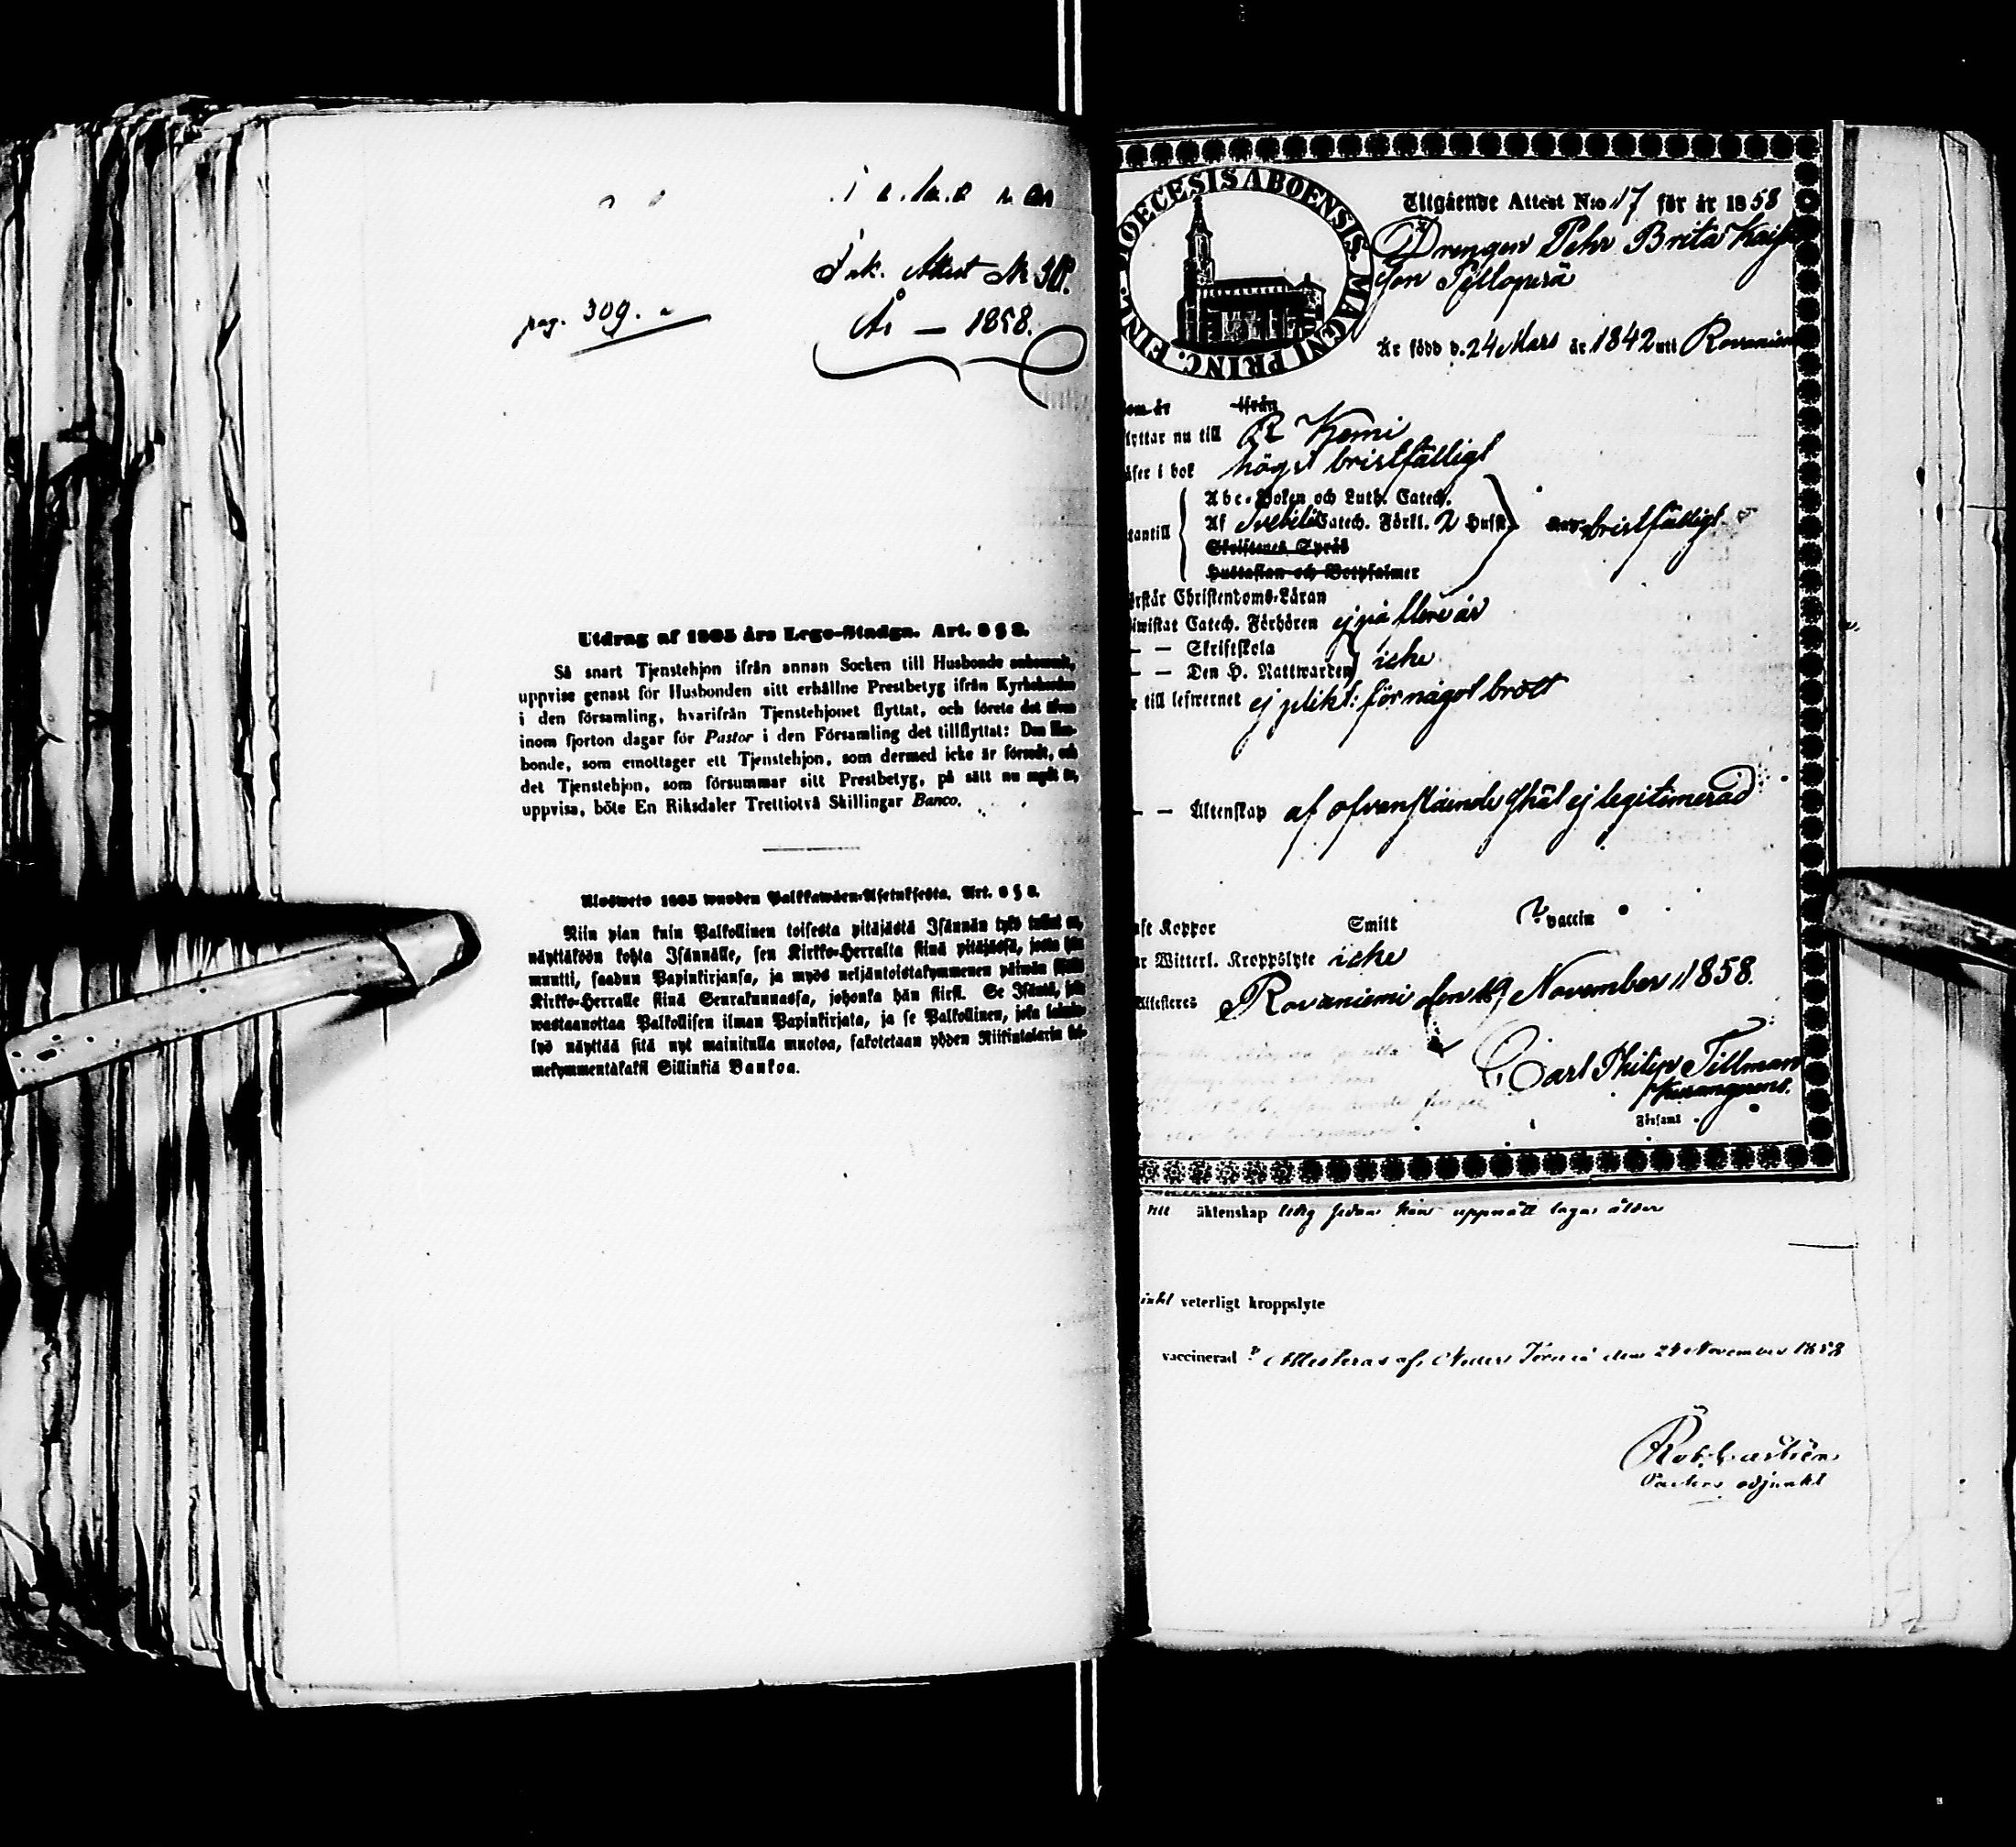 Ink. Attest No
År — 1858.
pag. 309.
Utdrag af 1805 års Lego-Stadga. Art. 8 § 8.
Så snart Tjenstehjon ifrån annan Socken till Husbonde ankommit,
uppvise genast för Husbonden sitt erhållne Prestbetyg ifrån Kyrkoherden
i den församling, hvarifrån Tjenstehjonet flyttat, och förete det äfven
inom fjorton dagar för Pastor i den Församling det tillflyttat: Den Hus-
bonde, som emottager ett Tjenstehjon, som dermed icke är försedt, och
det Tjenstehjon, som försummar sitt Prestbetyg, på sätt nu sagdt är,
uppvisa, böte En Riksdaler Trettiotvå Skillingar Banco.
Ulosweto 1805 wuoden Palkkawäen-Asetuksesta. Art. 8 § 8.
Niin pian kuin Palkollinen toisesta pitäjästä Isännän tykö tullut on,
näyttäköön kohta Isännälle, sen Kirkko-Herralta siinä pitäjässä, josta hän
muutti, saadun Papinkirjansa, ja myös neljäntoistakymmenen päiwän sisällä
Kirkko-Herralle siinä Seurakunnassa, johonka hän siirsi. Se Isäntä, joka
wastaanottaa Palkollisen ilman Papinkirjata, ja se Palkollinen, joka laimin-
lyö näyttää sitä nyt mainitulla muotoa, sakotetaan yhden Riikintalarin kol-
mekymmentäkaksi Sillinkiä Bankoa.
DIOECESIS ABOENSIS MAGNI PRINC. FINL.
Utgående Attest N:o 17 för år 1858
Drengen Pehr Brita Kaisa
Son Pellopera
Är född d. 24 Mars år 1842 uti Rovaniemi
som är ifrån
flyttar nu till Kemi
läser i bok högst bristfälligt
Abc-Boken och Luth. Catech.
utantill Af Svebilii Catech. Förkl. 2 Hufst. bristfälligt
Skriftenes Språk
Hustaflan och Botpsalmer
förstår Christendoms-Läran
bewistat Catech. Förhören ej på flere år
— — Skriftskola
— — Den H. Nattwarden icke
är till lefwernet ej plikt: för något brott
— — Äktenskap af ofvanstående skäl ej legitimerad
haft Koppor Smitt ? vaccin
har Witterl. Kroppslyte icke
Attesteres Rovaniemi den 19 November 1858.
Carl Philip Tillman
Församl
till äktenskap ledig sedan han uppnått laga ålder
intet veterligt kroppslyte
vaccinerad ? Attesteras af Neder Torneå den 24 November 1858
Pastors adjunkt